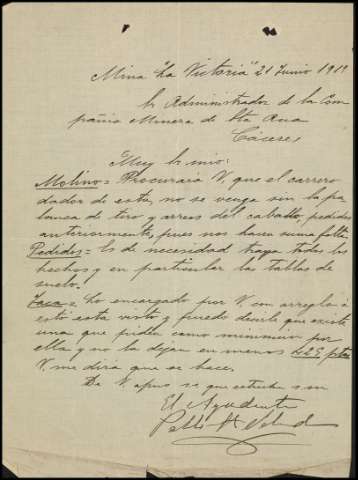 Mina "La Victoria" 21 Junio 1919
Sr Administrador de la Com
pañia Minera de Sta Ana
Cáceres
Muy Sr mio:
Molino = Procuraria V. que el carrero
dador de esta, no se venga sin la pa
lanca de tiro y arreos del caballo, pedidos
anteriormente, pues nos hacen suma falta
Pedidos = Es de necesidad traya todos los
hechos y en particular las tablas de
suelo.
Jaca = Lo encargado por V. con arreglo á
esto esta visto y puedo decirle que existe
una que piden como minimun por
ella y no la dejan en menos
V. me dira que se hace.
De V. afmo s.s. que estrecha s m
El Ayudante